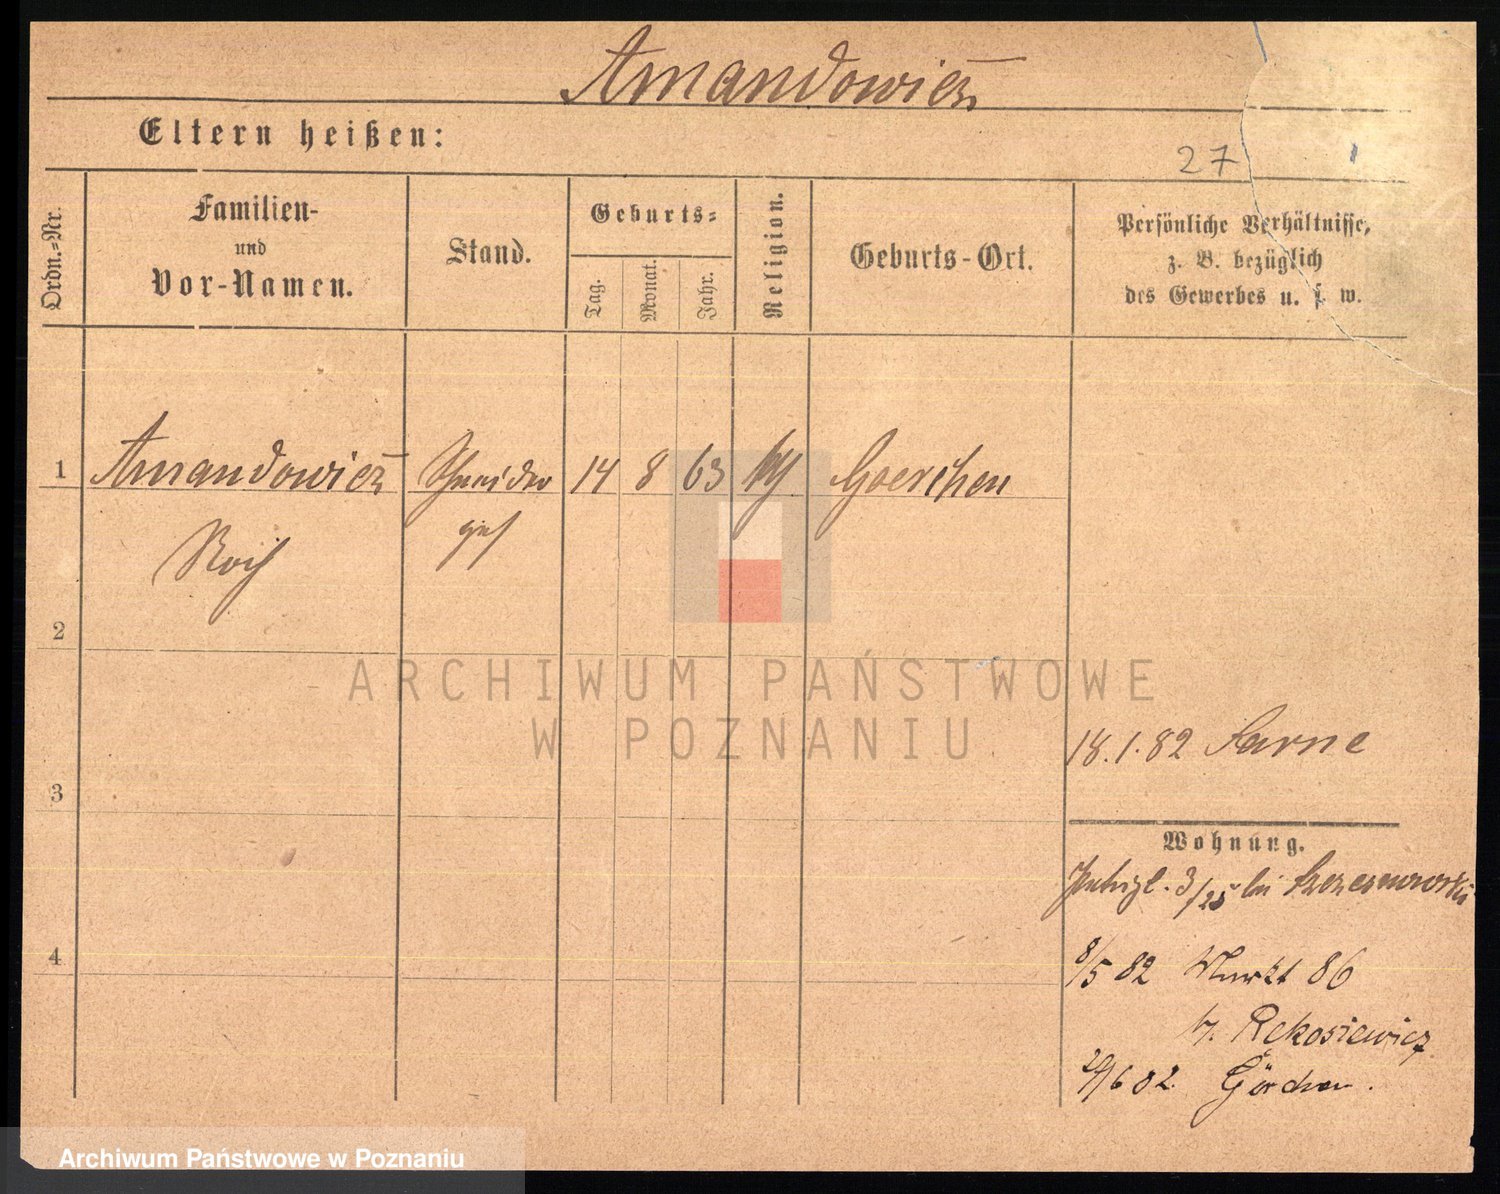 Amandowicz
Eltern heißen:
27
Ordn.-Nr.
Familien-
und
Vor-Namen.
Stand.
Geburts-
Tag.
Monat.
Jahr.
Religion.
Geburts-Ort.
Persönliche Verhältnisse,
z. B. bezüglich
des Gewerbes u. s. w.
1 Amandowicz Schneider 14 8 63 Goerchen
ges
2
ARCHIWUM PAŃSTWOWE
W POZNANIU
18.1.82 Sarne
3
Wohnung.
3/25 bei
4
8/5 82 Markt 86
b. Rekosiewicz
29/6 82. Görchen.
Archiwum Państwowe w Poznaniu